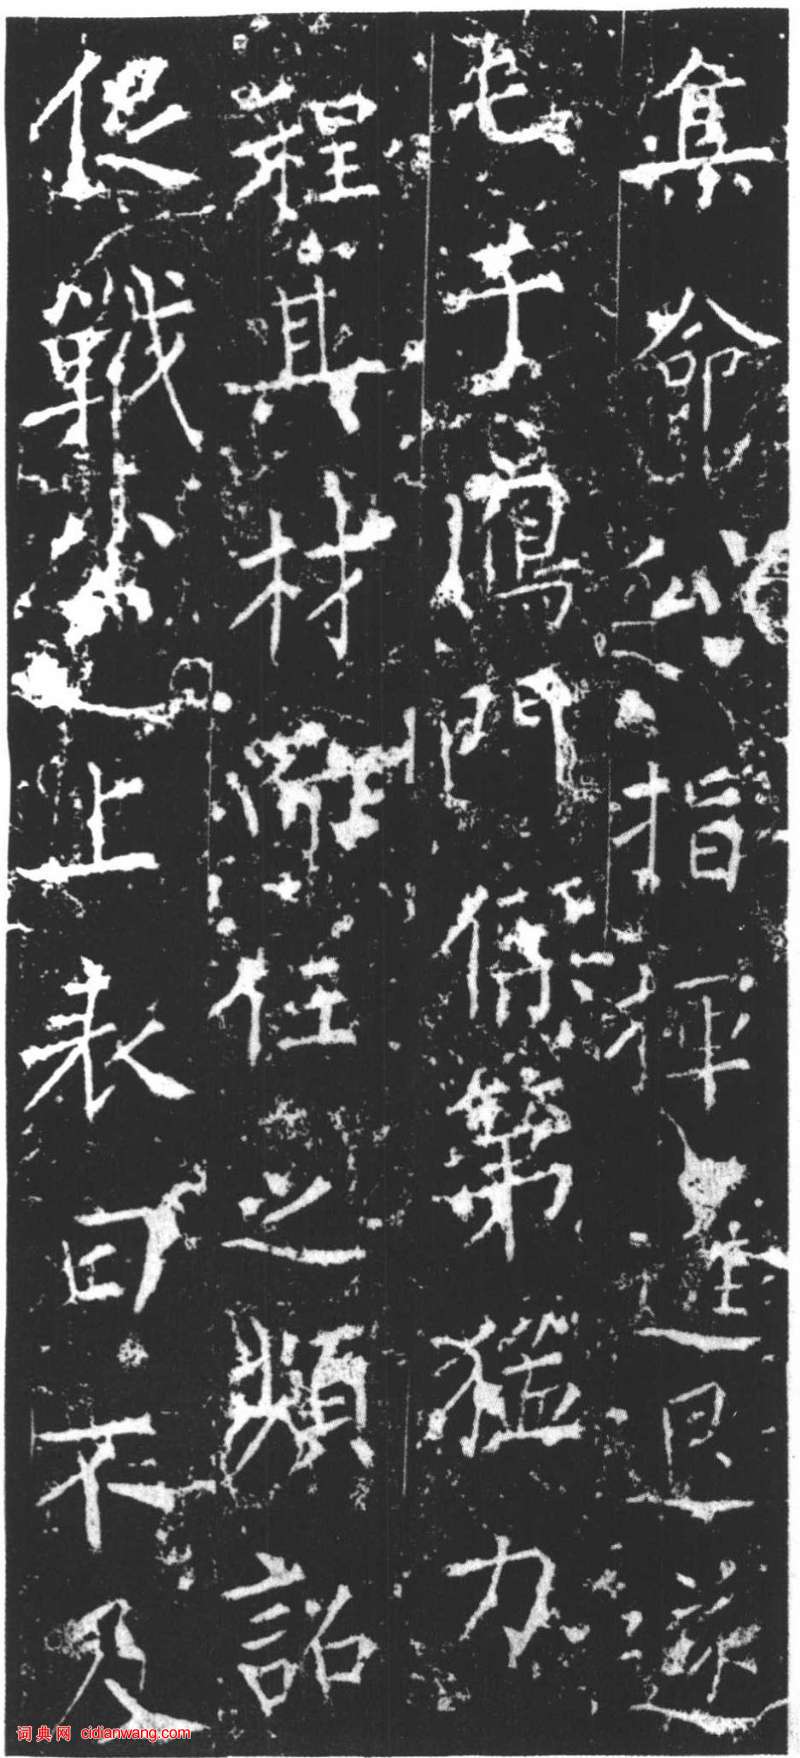 真命公指揮進退遂
老于鴈門第猛力
程其材任之頻詔
促戰上表曰不及
词典网 cidianwang.com